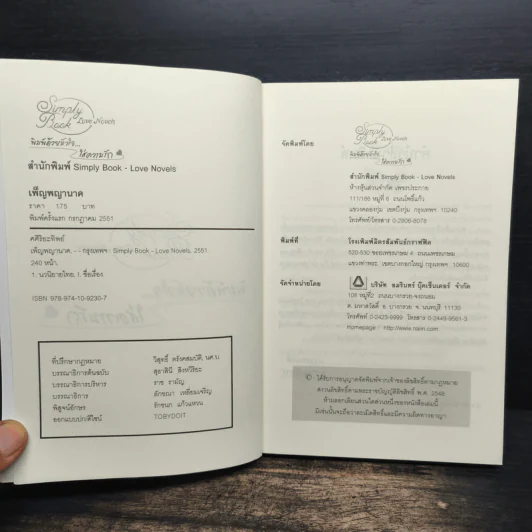 Simply Book
Love Novels
พิมพ์ด้วยหัวใจ...
ใส่ความรัก
สำนักพิมพ์ Simply Book - Love Novels
เพ็ญพญานาค
ราคา 175 บาท
พิมพ์ครั้งแรก กรกฎาคม 2551
ศศิริยะทิพย์
เพ็ญพญานาค. - - กรุงเทพฯ : Simply Book - Love Novels, 2551.
240 หน้า.
1. นวนิยายไทย. I. ชื่อเรื่อง
ISBN: 978-974-10-9230-7
ที่ปรึกษากฎหมาย วิสุทธิ์ ตรังคสมบัติ, นศ.บ.
บรรณาธิการต้นฉบับ สุธาสินี สิงหวิริยะ
บรรณาธิการบริหาร ราช รามัญ
บรรณาธิการ ลักขณา
พิสูจน์อักษร รักชนก แก้วแหวน
ออกแบบปกดีไซน์ TOBYDOIT
จัดพิมพ์โดย
Simply Book
Love Novels
พิมพ์ด้วยหัวใจ...
ใส่ความรัก
สำนักพิมพ์ Simply Book - Love Novels
ห้างหุ้นส่วนจำกัด เพชรประกาย
111/186 หมู่ที่ 6 ถนนโพธิ์แก้ว
แขวงคลองกุ่ม เขตบึงกุ่ม กรุงเทพฯ 10240
โทรศัพท์/โทรสาร 0-2908-8079
พิมพ์ที่ โรงพิมพ์มิตรสัมพันธ์กราฟฟิค
520-530 ซอยเพชรเกษม ถนนเพชรเกษม
แขวงท่าพระ เขตบางกอกใหญ่ กรุงเทพฯ 10600
จัดจำหน่ายโดย บริษัท อมรินทร์ บุ๊คเซ็นเตอร์ จำกัด
108 หมู่ที่2 ถนนบางกรวย-จงถนอม
ต. มหาสวัสดิ์ อ. บางกรวย จ. นนทบุรี 11130
โทรศัพท์ 0-2423-9999 โทรสาร 0-2449-9561-3
Homepage : http://www.naiin.com
© ได้รับการอนุญาตจัดพิมพ์จากเจ้าของลิขสิทธิ์ตามกฎหมาย
สงวนลิขสิทธิ์ตามพระราชบัญญัติลิขสิทธิ์ พ.ศ. 2548
ห้ามลอกเลียนส่วนใดส่วนหนึ่งของหนังสือเล่มนี้
มิเช่นนั้นจะถือว่าละเมิดสิทธิ์และมีความผิดทางอาญา